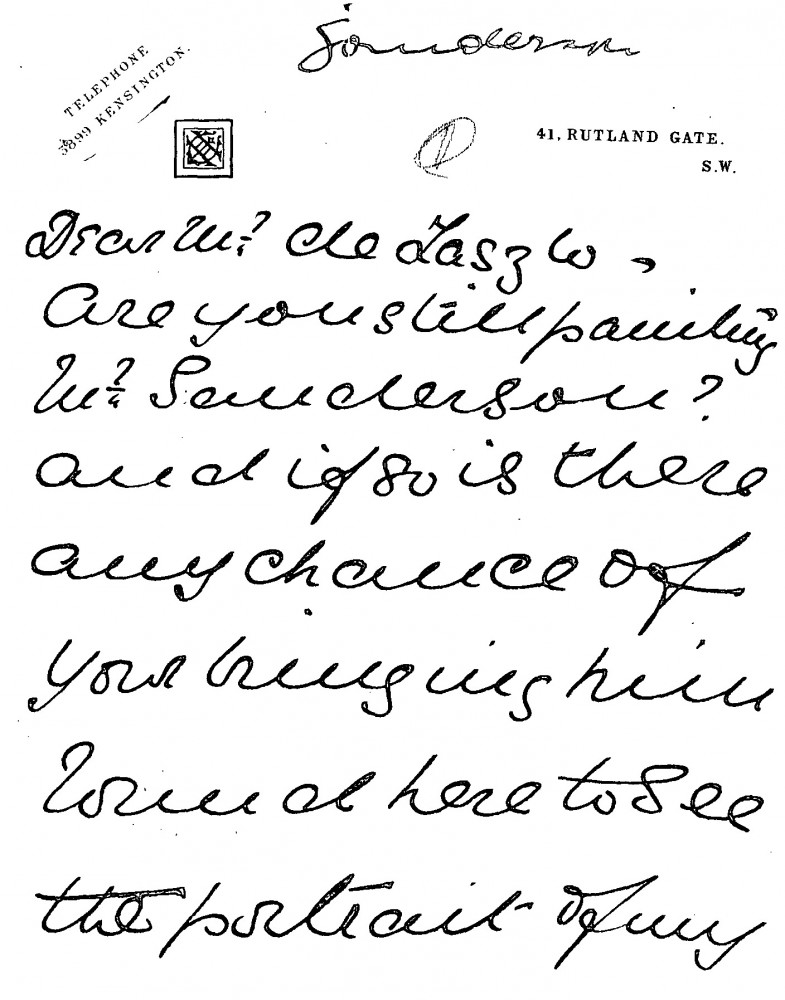 Sanderson
TELEPHONE
3899 KENSINGTON.
41, RUTLAND GATE.
S.W.
Dear Mr. de Laszlo,
Are you still painting
Mr. Sanderson?
and if so is there
any chance of
your bringing him
round here to see
the portrait of my